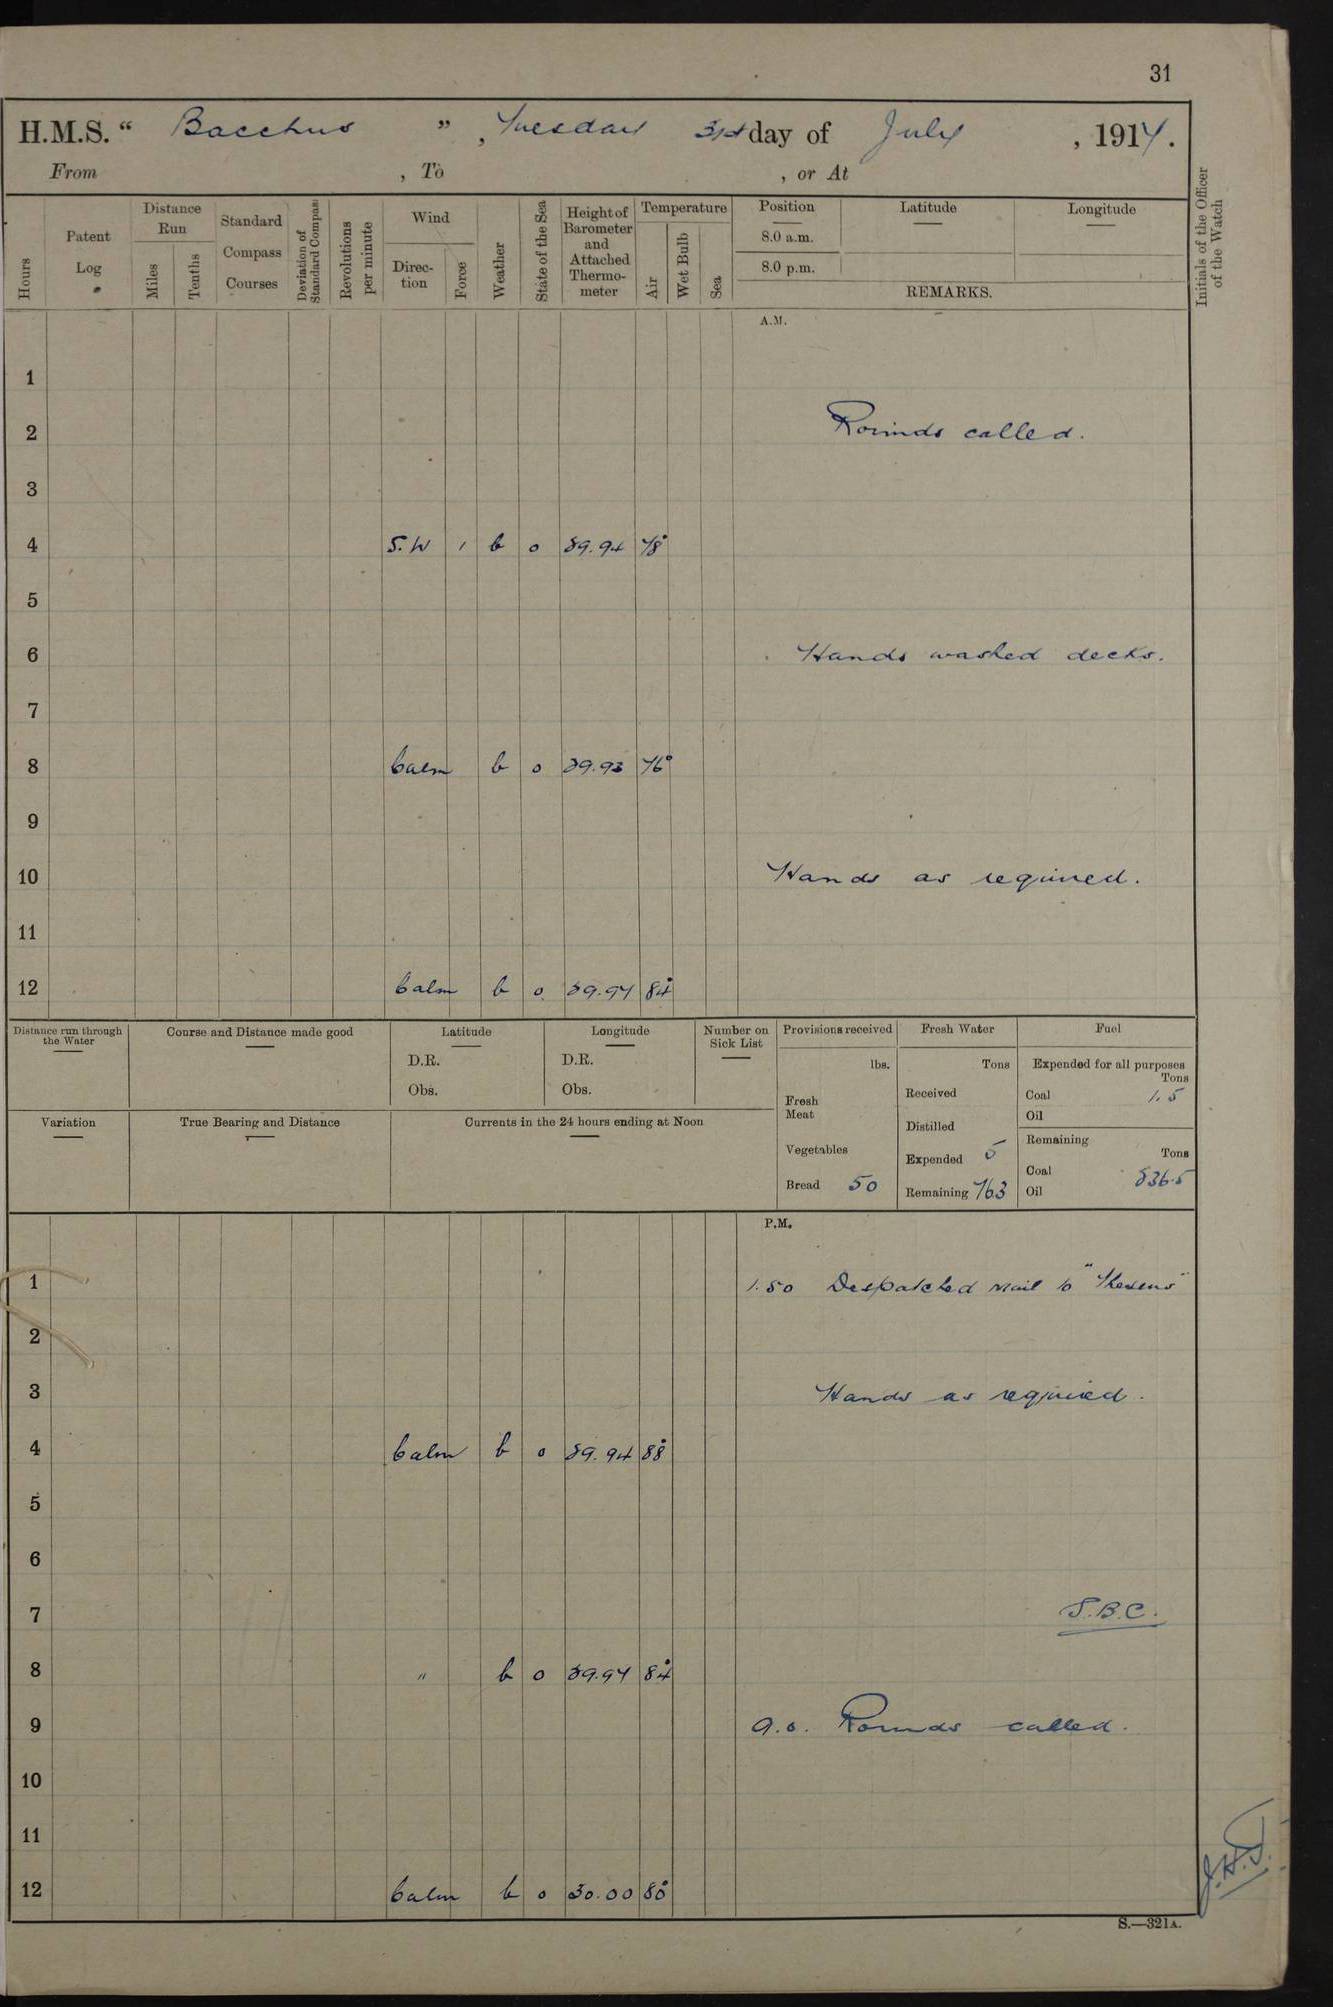 31
H.M.S. " Bacchus ", Tuesday 31st day of July, 1917.
From , To , or At
Hours
Patent Log
Distance Run
Miles
Tenths
Standard Compass Courses
Deviation of Standard Compass
Revolutions per minute
Wind
Direc-tion
Force
Weather
State of the Sea
Height of Barometer and Attached Thermo-meter
Temperature
Air
Wet Bulb
Sea
Position
8.0 a.m.
8.0 p.m.
Latitude
Longitude
REMARKS.
Initials of the Officer of the Watch
A.M.
1
2 Rounds called.
3
4 S.W 1 b o 29.94 78°
5
6 Hands washed decks.
7
8 Calm b o 29.93 76°
9
10 Hands as required.
11
12 Calm b o 29.97 84°
Distance run through the Water
Course and Distance made good
Latitude
D.R.
Obs.
Longitude
D.R.
Obs.
Number on Sick List
Provisions received
lbs.
Fresh Meat
Vegetables
Bread 50
Fresh Water
Tons
Received
Distilled
Expended 5
Remaining 763
Fuel
Expended for all purposes
Tons
Coal 1.5
Oil
Remaining
Tons
Coal 836.5
Oil
Variation
True Bearing and Distance
Currents in the 24 hours ending at Noon
P.M.
1 1.50 Despatched mail to "Theseus"
2
3 Hands as required.
4 Calm b o 29.94 88°
5
6
7 S.B.C.
8 " b o 29.97 84°
9 9.0. Rounds called.
10
11
12 Calm b o 30.00 80°
S.—321A.